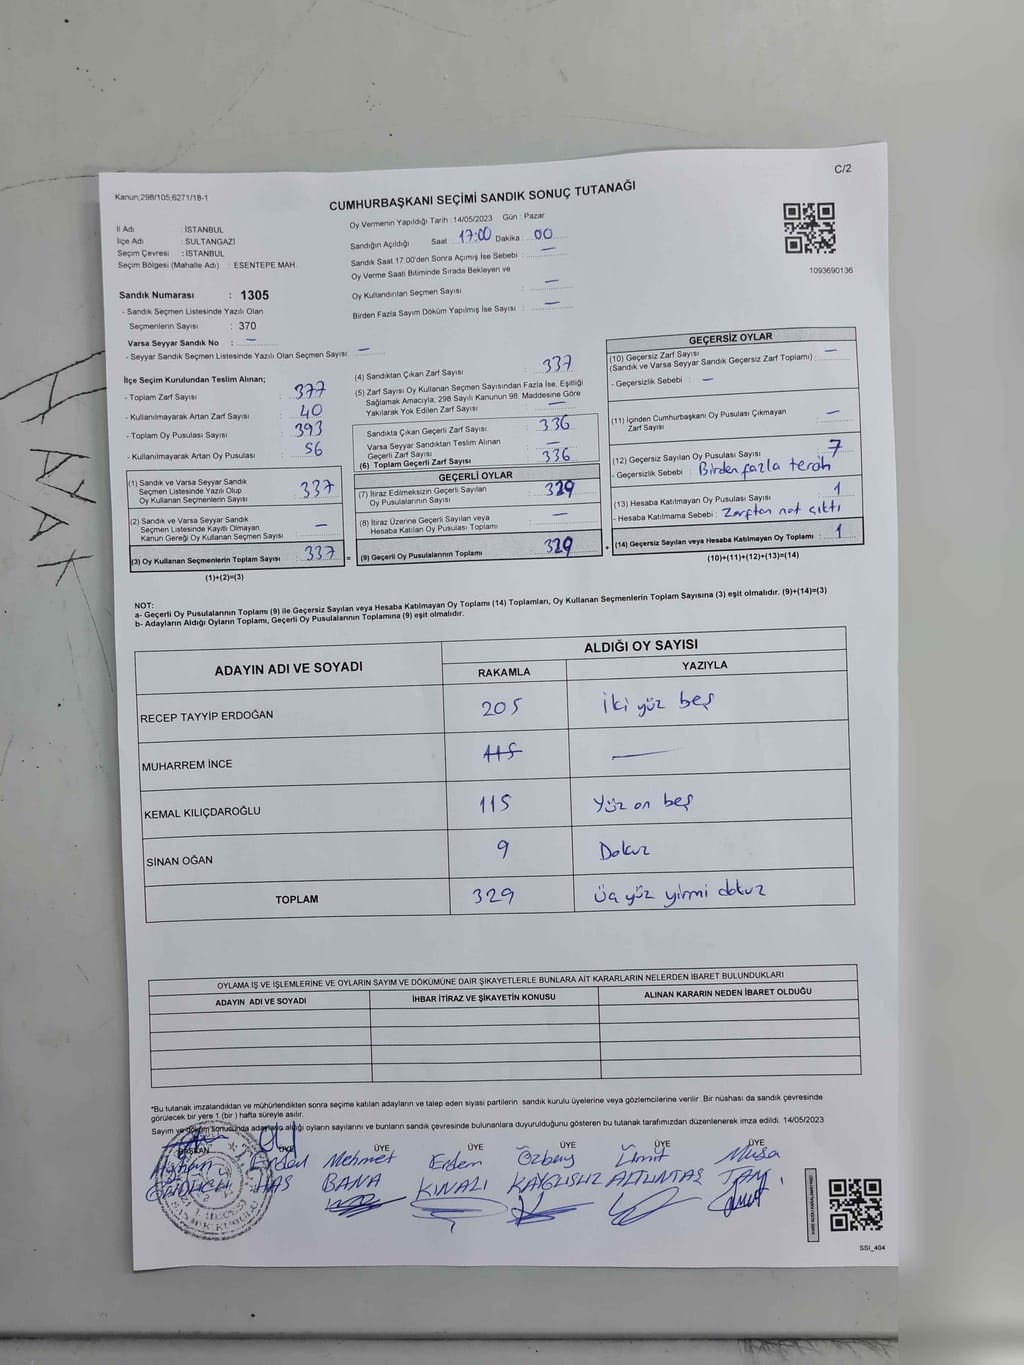 C/2
Kanun;298/105;6271/18-1
CUMHURBAŞKANI SEÇİMİ SANDIK SONUÇ TUTANAĞI
İl Adı : İSTANBUL
İlçe Adı : SULTANGAZİ
Seçim Çevresi : İSTANBUL
Seçim Bölgesi (Mahalle Adı) : ESENTEPE MAH.
Oy Vermenin Yapıldığı Tarih : 14/05/2023 Gün : Pazar
Sandığın Açıldığı Saat : 17:00 Dakika : 00
Sandık Saat 17:00'den Sonra Açımış İse Sebebi : —
Oy Verme Saati Bitiminde Sırada Bekleyen ve
Oy Kullandırılan Seçmen Sayısı : —
Birden Fazla Sayım Döküm Yapılmış İse Sayısı : —
1093690136
Sandık Numarası : 1305
- Sandık Seçmen Listesinde Yazılı Olan
Seçmenlerin Sayısı : 370
Varsa Seyyar Sandık No : —
- Seyyar Sandık Seçmen Listesinde Yazılı Olan Seçmen Sayısı: —
İlçe Seçim Kurulundan Teslim Alınan;
- Toplam Zarf Sayısı : 377
- Kullanılmayarak Artan Zarf Sayısı : 40
- Toplam Oy Pusulası Sayısı : 393
- Kullanılmayarak Artan Oy Pusulası : 56
(1) Sandık ve Varsa Seyyar Sandık
Seçmen Listesinde Yazılı Olup
Oy Kullanan Seçmenlerin Sayısı : 337
(2) Sandık ve Varsa Seyyar Sandık
Seçmen Listesinde Kayıtlı Olmayan
Kanun Gereği Oy Kullanan Seçmen Sayısı : —
(3) Oy Kullanan Seçmenlerin Toplam Sayısı : 337
(1)+(2)=(3)
(4) Sandıktan Çıkan Zarf Sayısı : 337
(5) Zarf Sayısı Oy Kullanan Seçmen Sayısından Fazla İse, Eşitliği
Sağlamak Amacıyla; 298 Sayılı Kanunun 98. Maddesine Göre
Yakılarak Yok Edilen Zarf Sayısı : —
Sandıkta Çıkan Geçerli Zarf Sayısı : 336
Varsa Seyyar Sandıktan Teslim Alınan
Geçerli Zarf Sayısı : —
(6) Toplam Geçerli Zarf Sayısı : 336
GEÇERLİ OYLAR
(7) İtiraz Edilmeksizin Geçerli Sayılan
Oy Pusulalarının Sayısı : 329
(8) İtiraz Üzerine Geçerli Sayılan veya
Hesaba Katılan Oy Pusulası Toplamı : —
(9) Geçerli Oy Pusulalarının Toplamı : 329
GEÇERSİZ OYLAR
(10) Geçersiz Zarf Sayısı
(Sandık ve Varsa Seyyar Sandık Geçersiz Zarf Toplamı) : —
- Geçersizlik Sebebi : —
(11) İçinden Cumhurbaşkanı Oy Pusulası Çıkmayan
Zarf Sayısı : —
(12) Geçersiz Sayılan Oy Pusulası Sayısı : 7
- Geçersizlik Sebebi : Birden fazla tercih
(13) Hesaba Katılmayan Oy Pusulası Sayısı : 1
- Hesaba Katılmama Sebebi : Zarftan not çıktı
(14) Geçersiz Sayılan veya Hesaba Katılmayan Oy Toplamı : 1
(10)+(11)+(12)+(13)=(14)
NOT:
a- Geçerli Oy Pusulalarının Toplamı (9) ile Geçersiz Sayılan veya Hesaba Katılmayan Oy Toplamı (14) Toplamları, Oy Kullanan Seçmenlerin Toplam Sayısına (3) eşit olmalıdır. (9)+(14)=(3)
b- Adayların Aldığı Oyların Toplamı, Geçerli Oy Pusulalarının Toplamına (9) eşit olmalıdır.
ADAYIN ADI VE SOYADI
ALDIĞI OY SAYISI
RAKAMLA YAZIYLA
RECEP TAYYİP ERDOĞAN 205 İki yüz beş
MUHARREM İNCE 115 —
KEMAL KILIÇDAROĞLU 115 Yüz on beş
SİNAN OĞAN 9 Dokuz
TOPLAM 329 Üç yüz yirmi dokuz
OYLAMA İŞ VE İŞLEMLERİNE VE OYLARIN SAYIM VE DÖKÜMÜNE DAİR ŞİKAYETLERLE BUNLARA AİT KARARLARIN NELERDEN İBARET BULUNDUKLARI
ADAYIN ADI VE SOYADI İHBAR İTİRAZ VE ŞİKAYETİN KONUSU ALINAN KARARIN NEDEN İBARET OLDUĞU
*Bu tutanak imzalandıktan ve mühürlendikten sonra seçime katılan adayların ve talep eden siyasi partilerin sandık kurulu üyelerine veya gözlemcilerine verilir. Bir nüshası da sandık çevresinde
görülecek bir yere 1 (bir) hafta süreyle asılır.
Sayım ve döküm sonucunda adayların aldığı oyların sayılarını ve bunların sandık çevresinde bulunanlara duyurulduğunu gösteren bu tutanak tarafımızdan düzenlenerek imza edildi. 14/05/2023
BAŞKAN ÜYE ÜYE ÜYE ÜYE ÜYE ÜYE
Mehmet Erdem Özbay Ümit Musa
BANA KINALI KAYGUSUZ ALTUNTAŞ
SSI_404